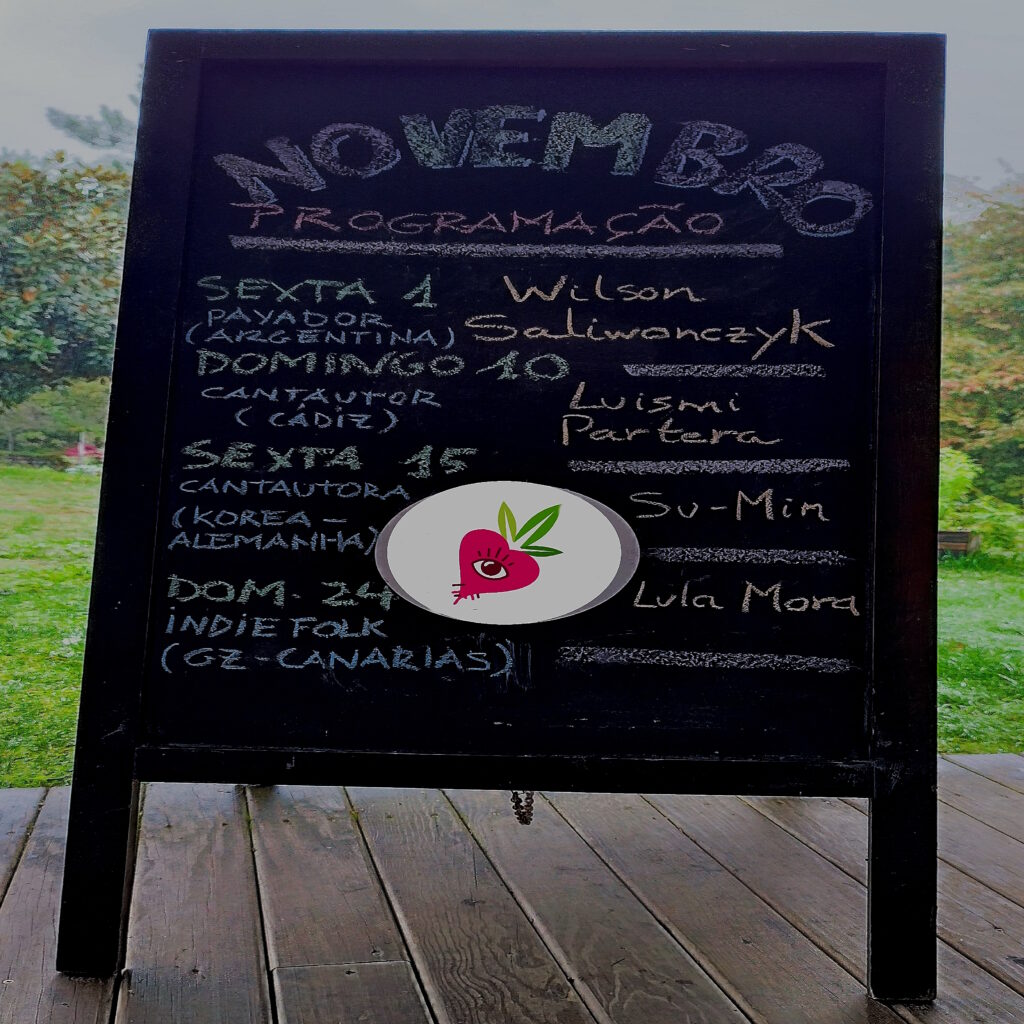 NOVEMBRO
PROGRAMAÇÃO
SEXTA 1
PAYADOR
(ARGENTINA)
Wilson
Saliwonczyk
DOMINGO 10
CANTAUTOR
(CÁDIZ)
Luismi
Partera
SEXTA 15
CANTAUTORA
(KOREA –
ALEMANHA)
Su-Min
DOM. 24
INDIE FOLK
(GZ-CANARIAS)
Lula Mora